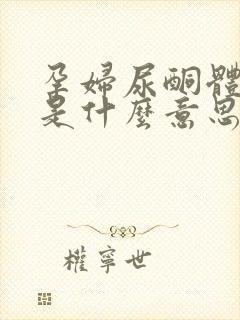 孕婦尿酮體
是什麼意思
權寧世